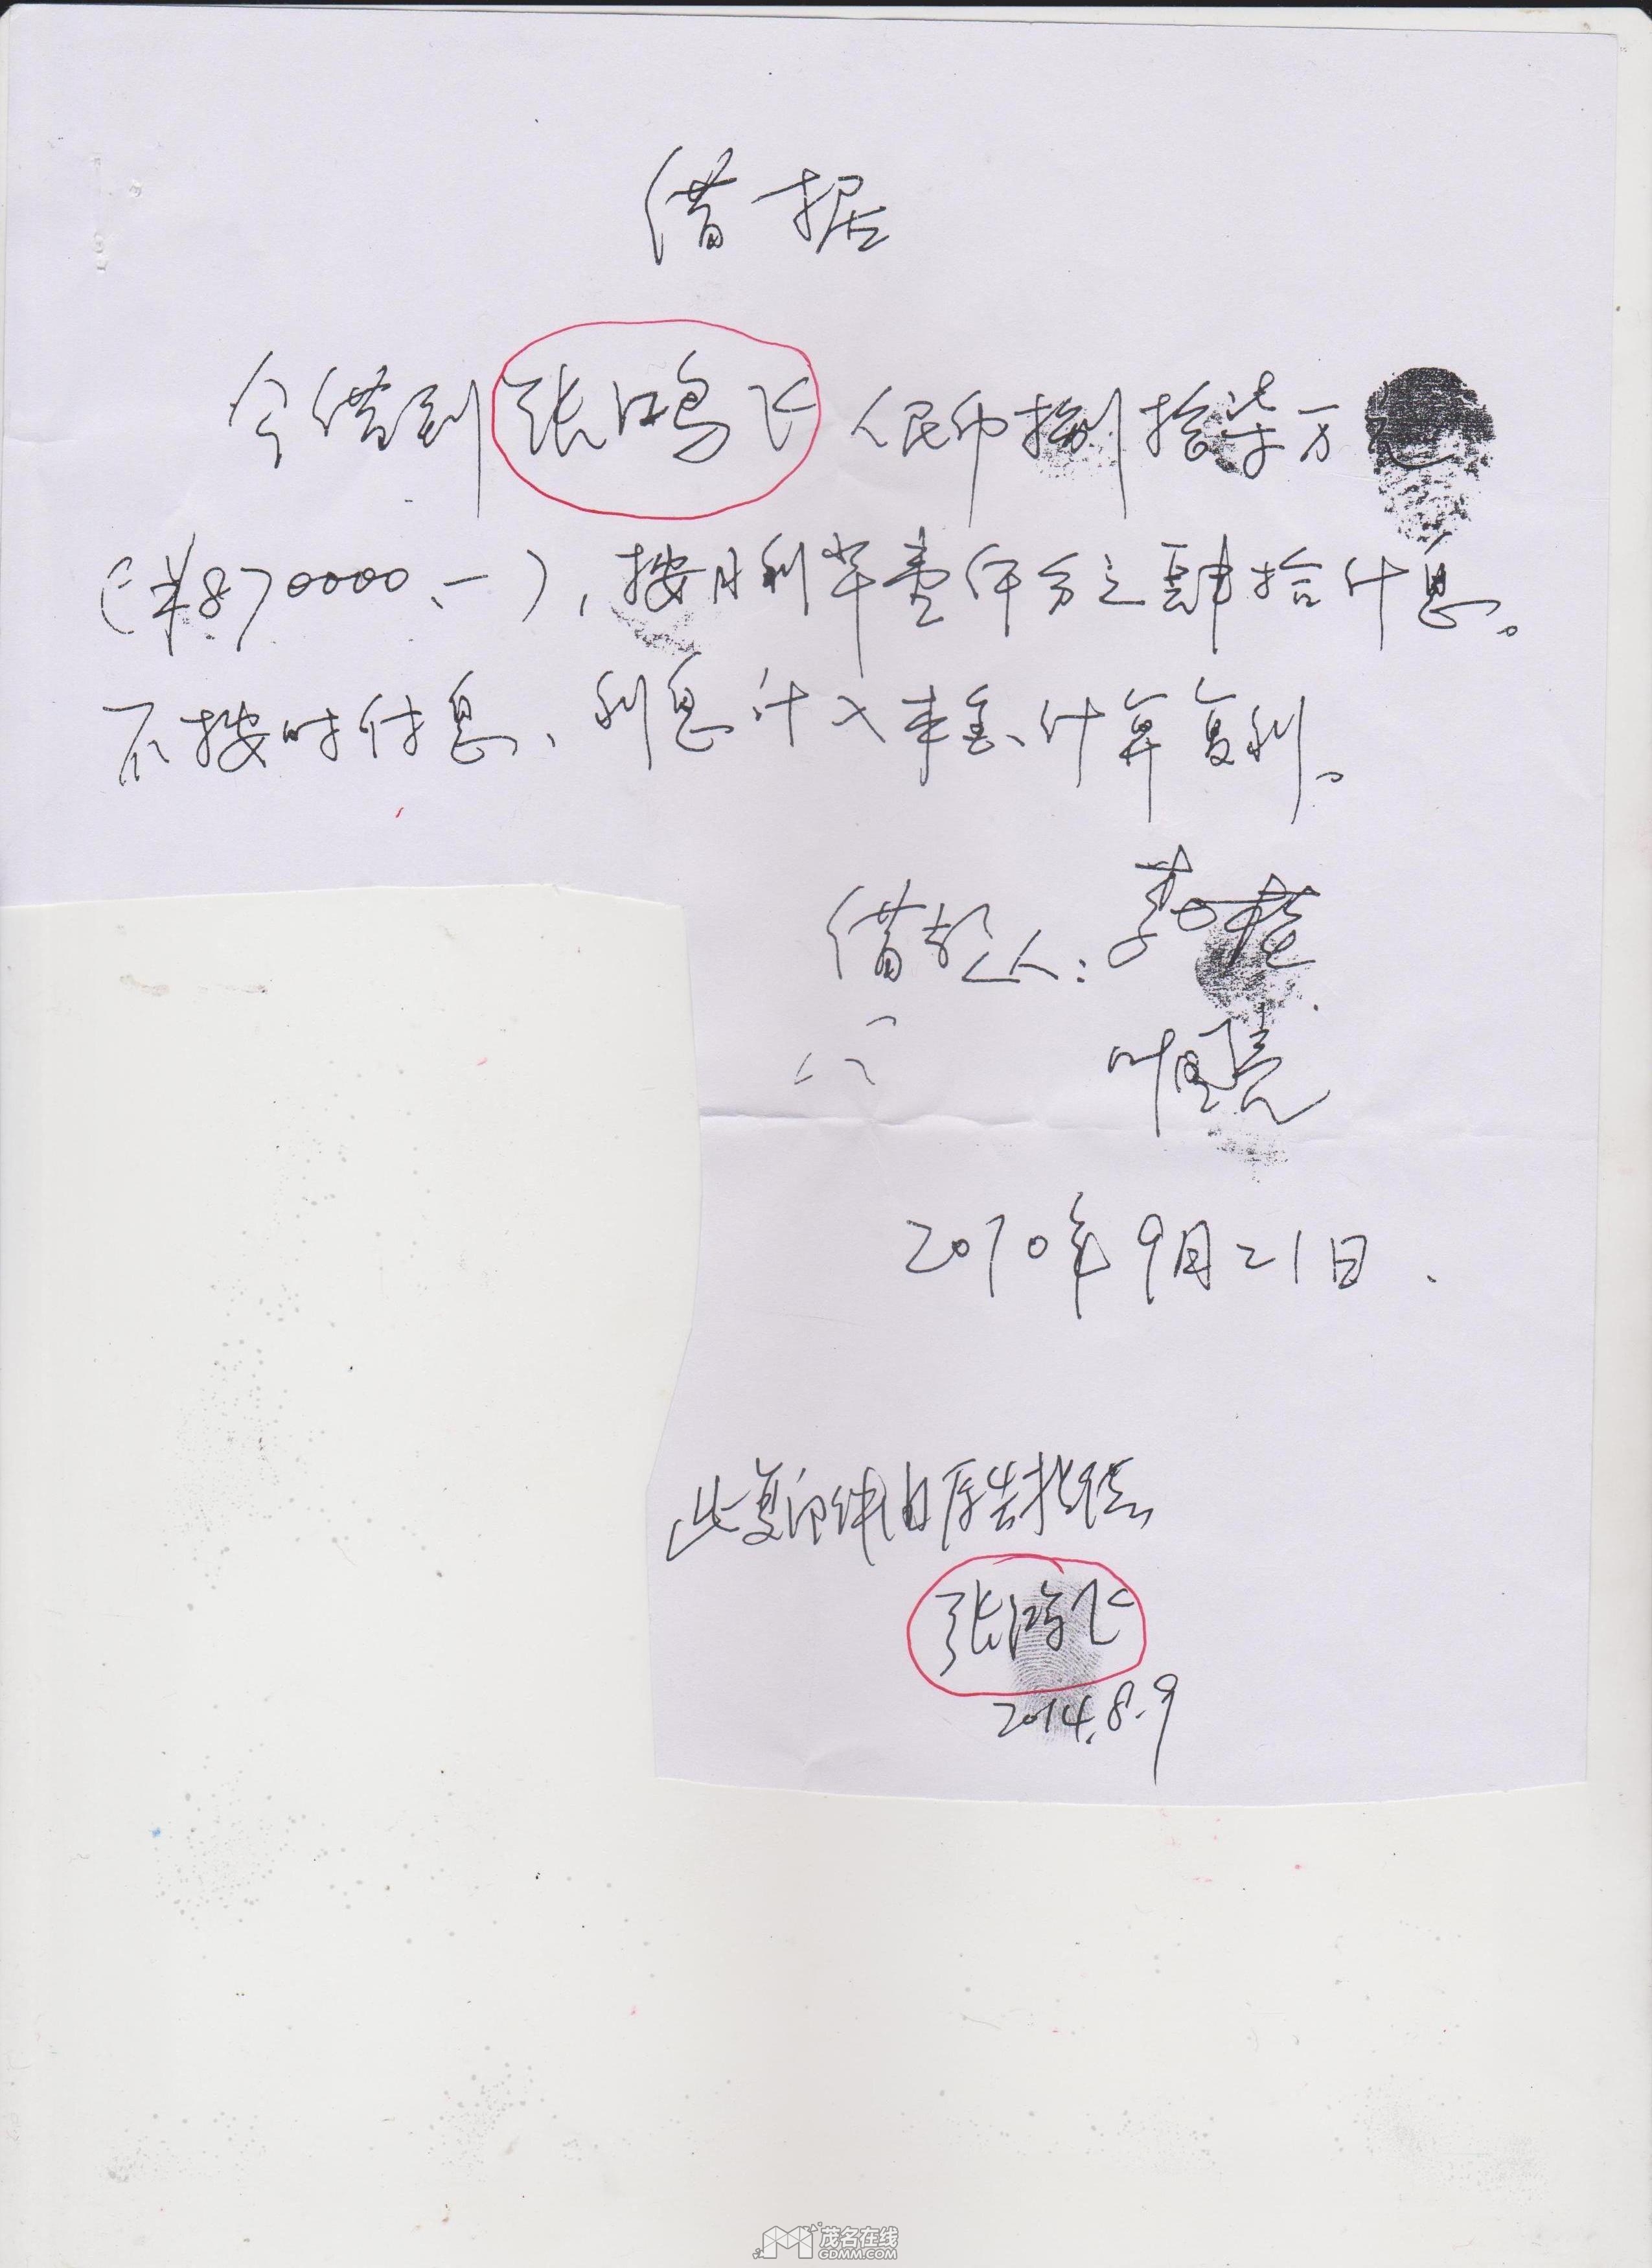 借据
今借到张鸿飞人民币捌拾柒万元
(¥870000.一),按月利率壹仟分之肆拾计息。
不按时付息、利息计入本金计算复利。
借款人:李
叶
2010年9月21日.
此复印件由原告提供
张鸿飞
2014.8.9
茂名在线
GDMM.COM